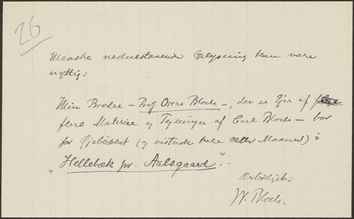 26
Maaske nedenstaaende Oplysning kan være
nyttig:
Min Broder – Prof Oscar Bloch –, der er Ejer af
flere Malerier og Tegninger af Carl Bloch – bor
for Øjeblikket (og vistnok hele Maaned) i
"Hellebæk pr. Aalsgaard".
Ærbødigst
W. Bloch.